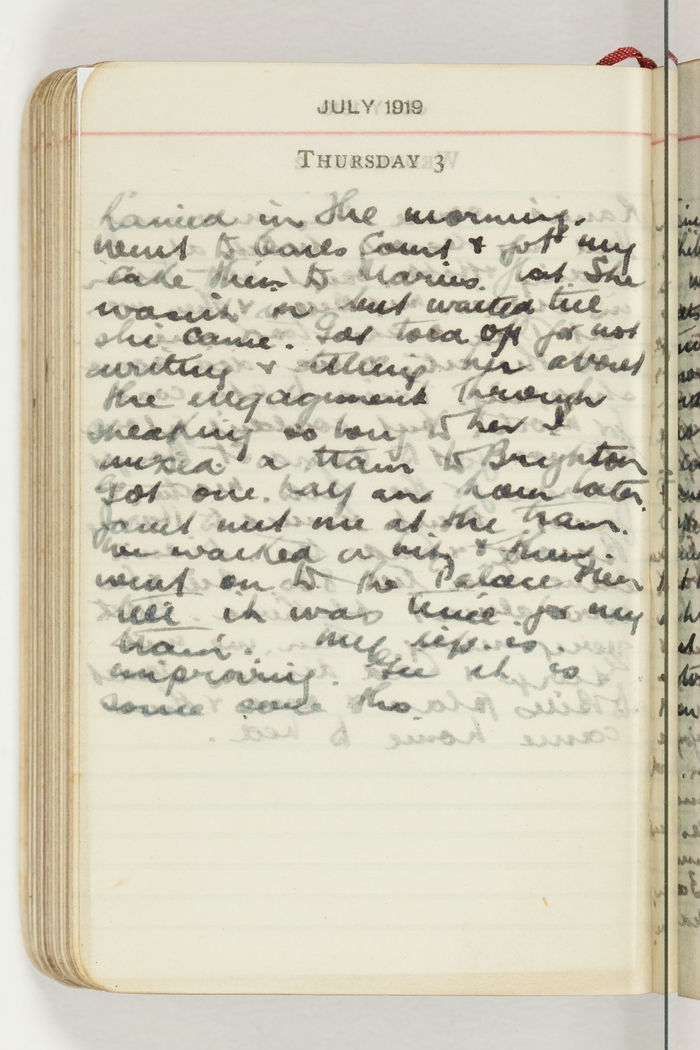 JULY 1919
THURSDAY 3
in the morning.
went to Earls Court & got my
cake then to Maries. but She
wasn't in but waited till
she came. Got told off for not
writing & telling her about
the engagement through
speaking so long to her I
missed a train to Brighton
Got one half an hour later.
Janet met me at the train.
we walked a bit & then
went on to the Palace Pier
till it was time for my
train. My lip is
improving. it is
some sore tho